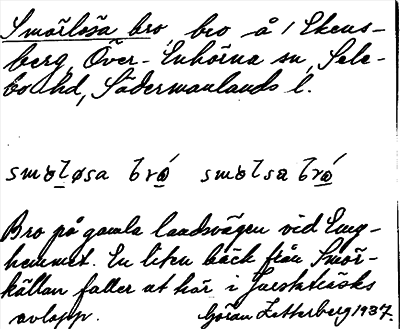 Smörlösa bro, bro å / Ekens-
berg, Över-Enhörna sn, Sele-
bo hd, Södermanlands l.
smøløsa bro smølsa bro
Bro på gamla landsvägen vid Eng-
hemmet. En liten bäck från Smör-
källan faller ut här i
avlopp. Göran Zetterberg 1937.